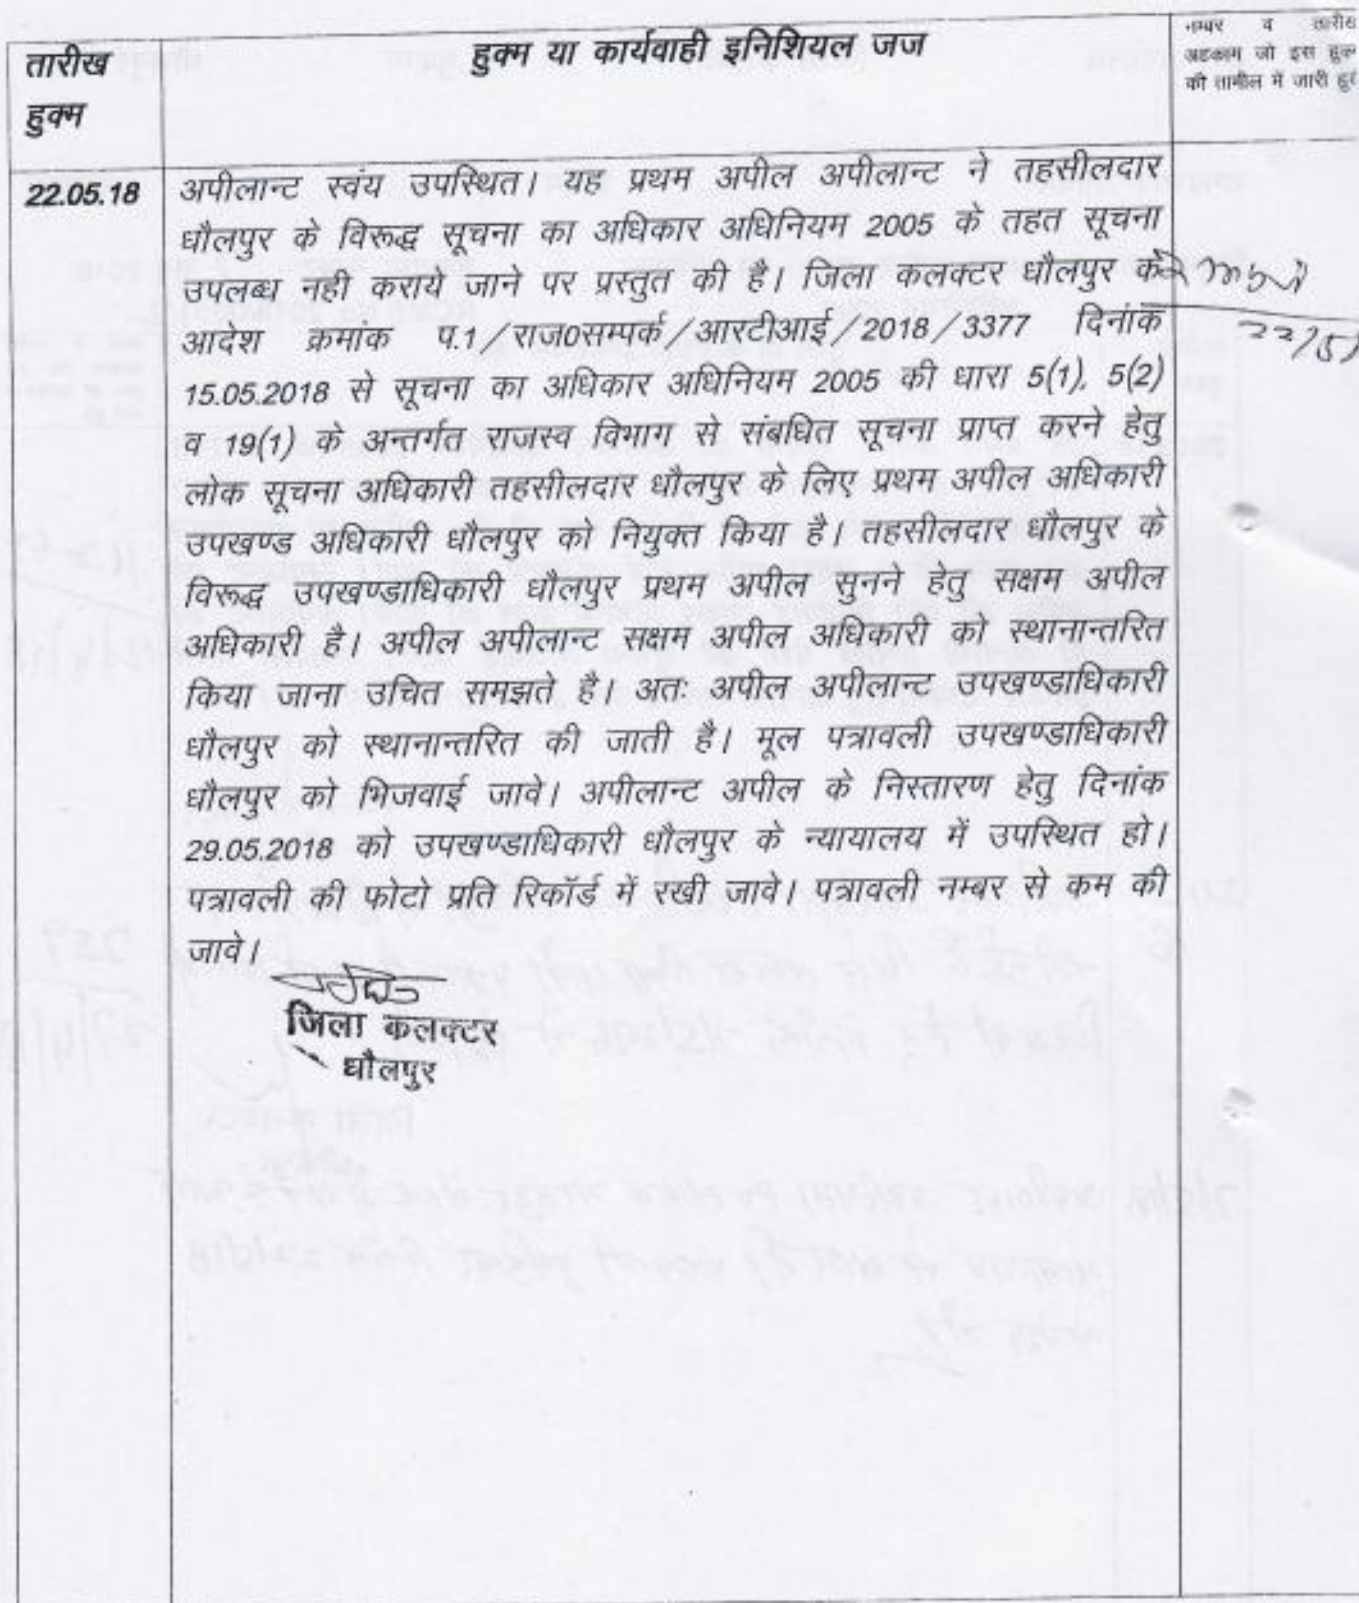 तारीख
हुक्म
हुक्म या कार्यवाही इनिशियल जज
नम्बर व तारीख
अहकाम जो इस हुक्म
की तामील में जारी हुए
22.05.18
अपीलान्ट स्वंय उपस्थित। यह प्रथम अपील अपीलान्ट ने तहसीलदार
धौलपुर के विरूद्ध सूचना का अधिकार अधिनियम 2005 के तहत सूचना
उपलब्ध नही कराये जाने पर प्रस्तुत की है। जिला कलक्टर धौलपुर के
आदेश क्रमांक प.1/राज0सम्पर्क/आरटीआई/2018/3377 दिनांक
15.05.2018 से सूचना का अधिकार अधिनियम 2005 की धारा 5(1), 5(2)
व 19(1) के अन्तर्गत राजस्व विभाग से संबधित सूचना प्राप्त करने हेतु
लोक सूचना अधिकारी तहसीलदार धौलपुर के लिए प्रथम अपील अधिकारी
उपखण्ड अधिकारी धौलपुर को नियुक्त किया है। तहसीलदार धौलपुर के
विरूद्ध उपखण्डाधिकारी धौलपुर प्रथम अपील सुनने हेतु सक्षम अपील
अधिकारी है। अपील अपीलान्ट सक्षम अपील अधिकारी को स्थानान्तरित
किया जाना उचित समझते है। अतः अपील अपीलान्ट उपखण्डाधिकारी
धौलपुर को स्थानान्तरित की जाती है। मूल पत्रावली उपखण्डाधिकारी
धौलपुर को भिजवाई जावे। अपीलान्ट अपील के निस्तारण हेतु दिनांक
29.05.2018 को उपखण्डाधिकारी धौलपुर के न्यायालय में उपस्थित हो।
पत्रावली की फोटो प्रति रिकॉर्ड में रखी जावे। पत्रावली नम्बर से कम की
जावे।
22/5/
जिला कलक्टर
धौलपुर